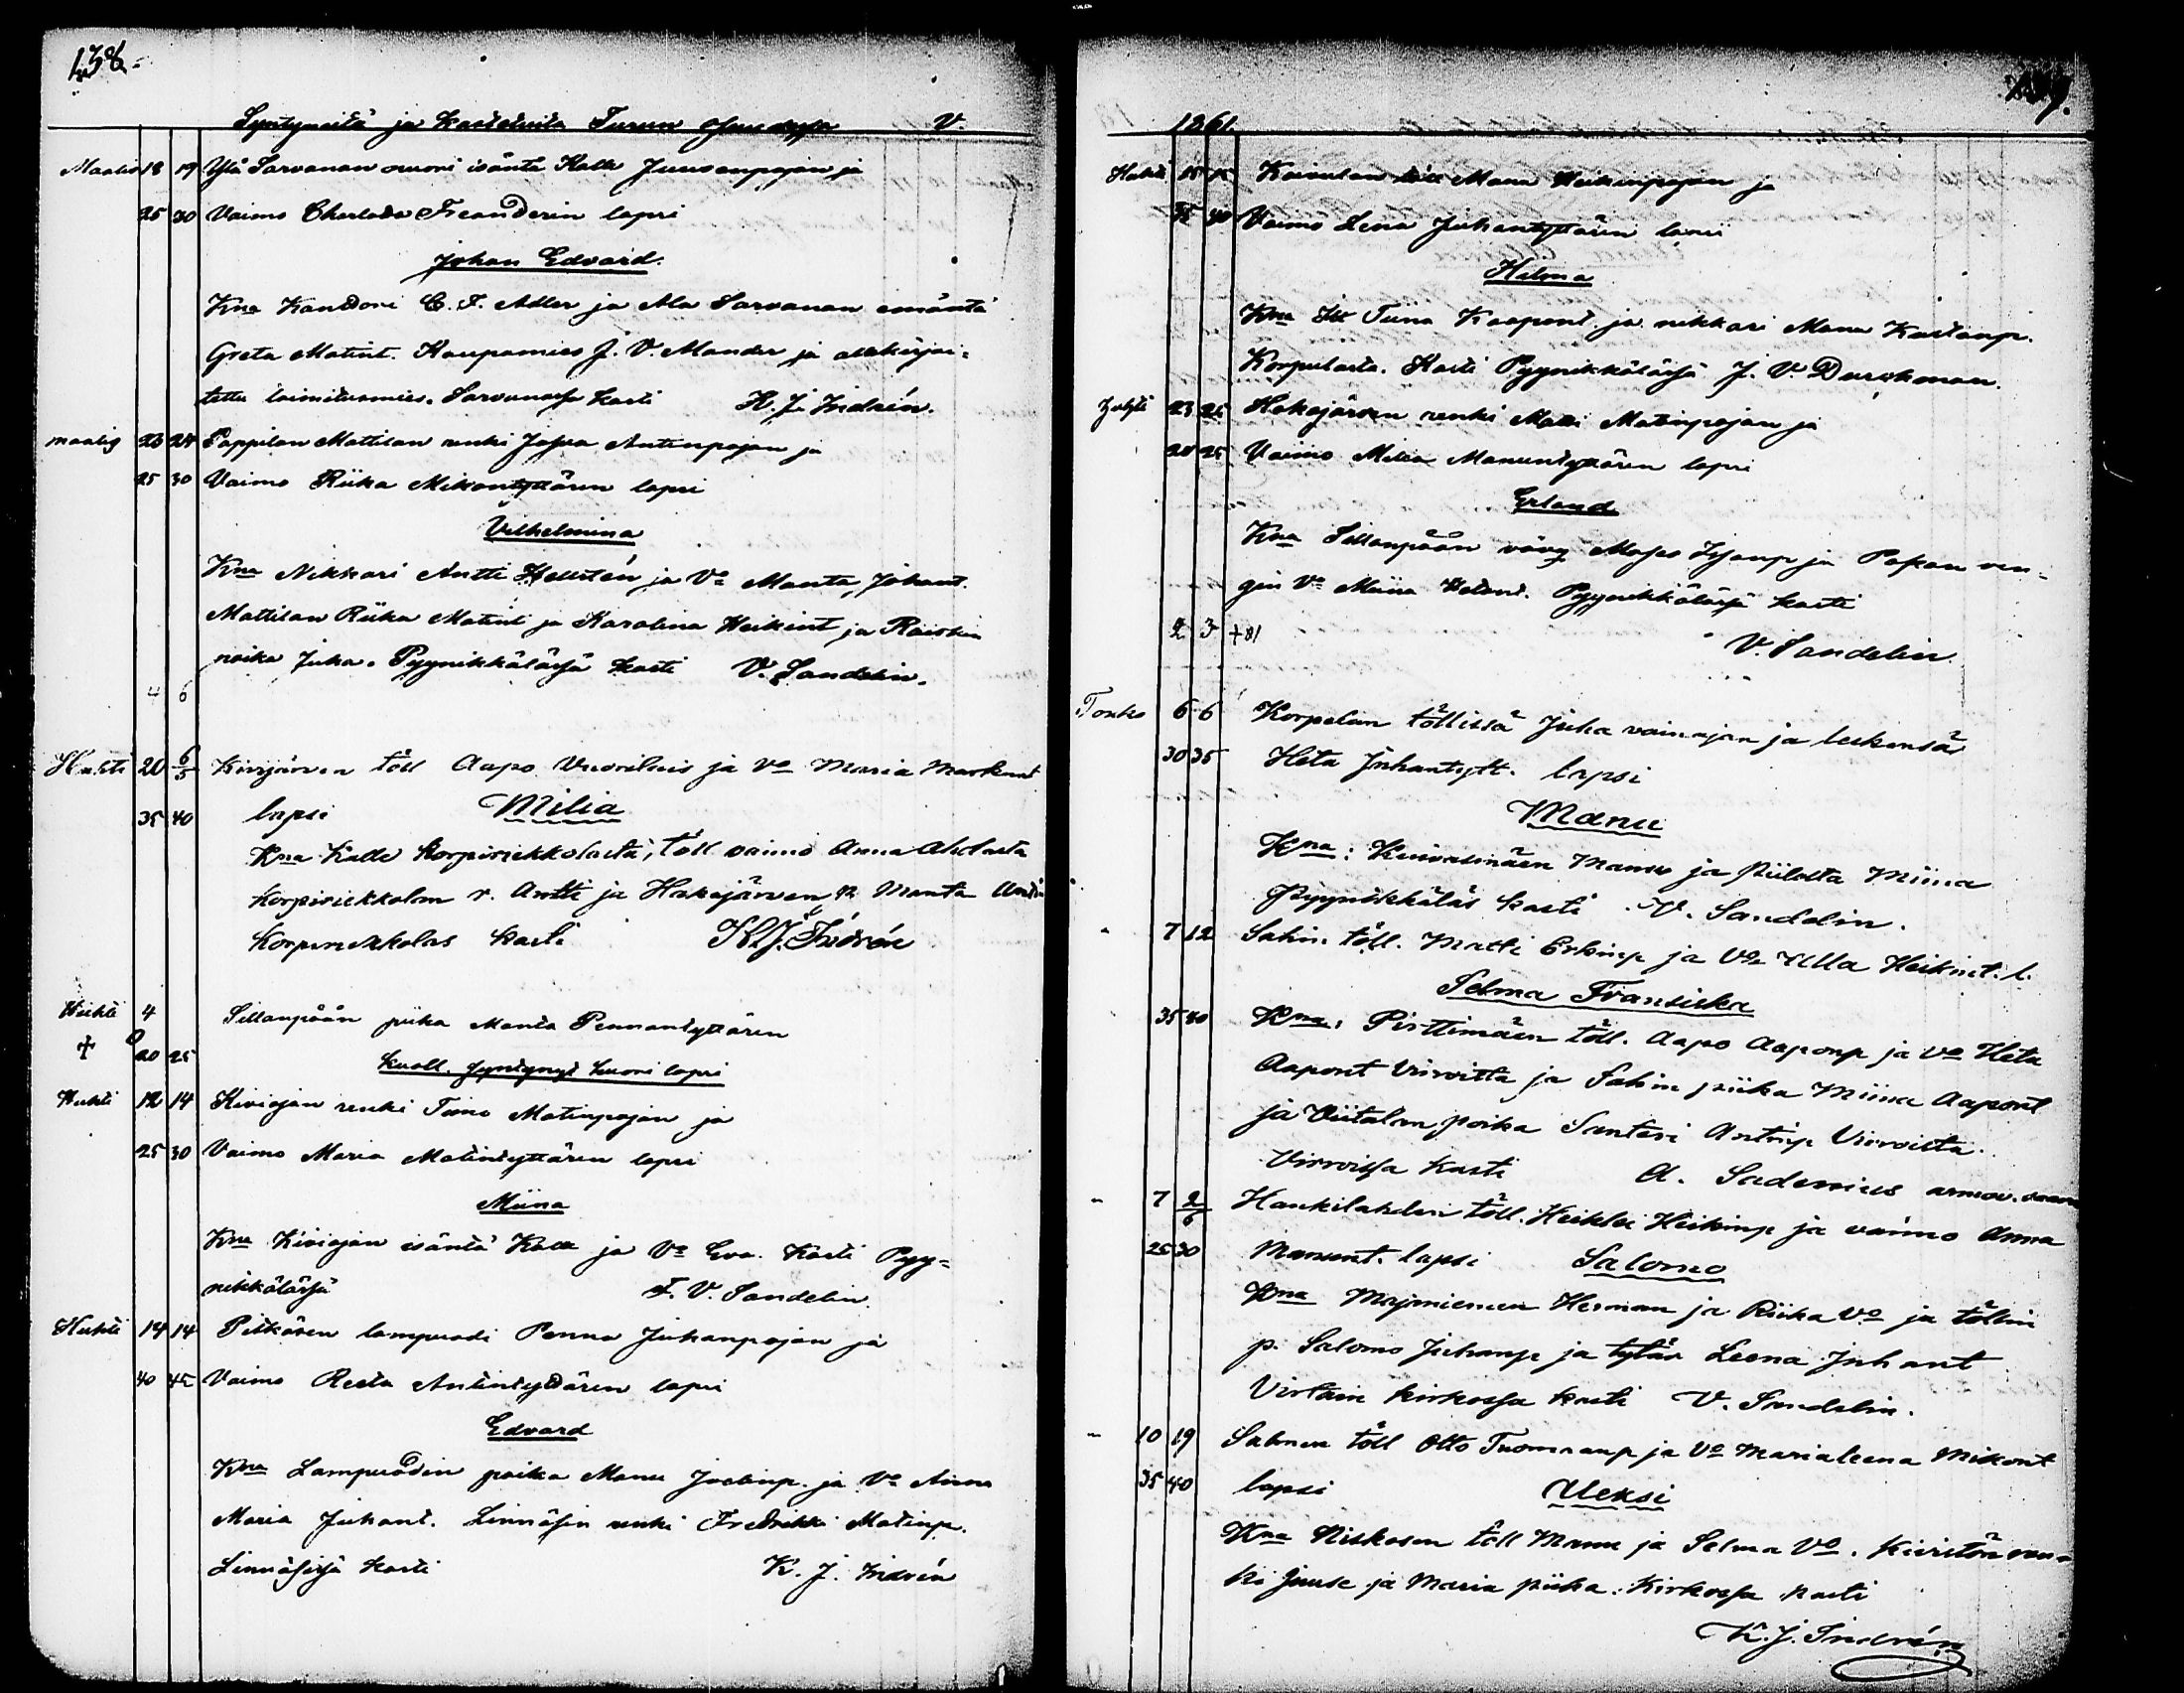 138.
Syntyneitä ja Kastetuita Turun V.
Maalis 18 19 Ylä Sarvanan nuori isäntä Kalle Juusenpojan ja
25 30 Vaimo Freanderin lapsi
Johan Edvard.
Kna Kandori C. F. Adler ja Ala Sarvanan emäntä
Greta Matint. Kaupamies J. V. Mander ja allekirjoi-
tettu toimitusmies. Sarvanassa kasti K. J. Indrén.
maalis 23 24 Pappilan Mattilan renki Josva Antinpojan ja
25 30 Vaimo Riika Mikontyttären lapsi
Vilhelmina
Kna Nikkari Antti Hellstén ja Vo Manta Johant.
Mattilan Riika Matint ja Karolina Heikint ja
poika Juha. Pyynikkälässä kasti V. Sandelin.
4 6
Huhti 20 6/5 Kirjärven töll Aapo ja Vo Maria Markunt
35 40 lapsi Milia
Kna Kalle Korpiriekkolasta, töll vaimo Anna Aholasta
Korpiriekkolan r. Antti ja Hakojärven p. Manta
Korpiriekkolas kasti K. J. Indrén
Huhti 4 Sillanpään piika Manta Pennantyttären
+ 20 25 kuoll. syntynyt huoni lapsi
Huhti 12 14 Kiviojan renki Timo Matinpojan ja
25 30 Vaimo Maria Matintyttären lapsi
Miina
Kna Kiviojan isäntä Kalle ja Vo Eva. Kasti Pyy-
nikkälässä F. V. Sandelin.
Huhti 14 14 Pitkäsen lampuodi Penna Juhanpojan ja
40 45 Vaimo Reeta Antintyttären lapsi
Edvard
Kna Lampuodin poika Manu Joelinp. ja Vo Anna
Maria Juhant. Linnäsin renki Fredrikki Matinp.
Linnäsissä kasti K. J. Indrén
1861.
Huhti 15 15 Koivulan Manu Heikinpojan ja
35 40 Vaimo Lena Juhantyttären lapsi
Hilma
Kna Tiina Kaapont. ja nikkari Manu Kustaap.
Korpulasta. Kasti Pyynikkälässä J. V. Durchman.
Huhti 23 25 Hakojärven renki Matti Matinpojan ja
20 25 Vaimo Milia Manuntyttären lapsi
Erland
Kna Sillanpään vävy Moses ja Papan ren-
gin Vo Miina Pyynikkälässä kasti
2 3 +81 V. Sandelin.
Touko 6 6 Korpelan töllissä Juha vainajan ja leskensä
30 35 Heta Juhantytt. lapsi
Manu
Kna: Kuivasmäen Manu ja Piilosta Miina
Pyynikkäläs kasti V. Sandelin.
" 7 12 Sahin töll. Matti Erkinp ja Vo Ulla Heikint. l.
Selma Fransiska
35 40 Kna: Pirttimäen töll. Aapo Aaponp ja Vo Heta
Aapont Virroitta ja Sahin piika Miina Aapont
ja Viitalan poika Santeri Antinp Virroilta.
Virroissa kasti A. Sadenius
" 7 2/6 Hankilahden töll. Heikki Heikinp ja vaimo Anna
25 30 Manunt. lapsi Salomo
Kna Majaniemen Herman ja Riika Vo ja töllin
p. Salomo Juhanp ja tytär Leena Juhant
Virtain kirkossa kasti V. Sandelin.
" 10 19 Salmen töll Otto Tuomaanp ja Vo Marialeena Mikont
35 40 lapsi Ueksi
Kna Niskosen töll Manu ja Selma Vo. Kivistön ren-
ki Juuse ja Maria piika. Kirkossa kasti
K. J. Indrén